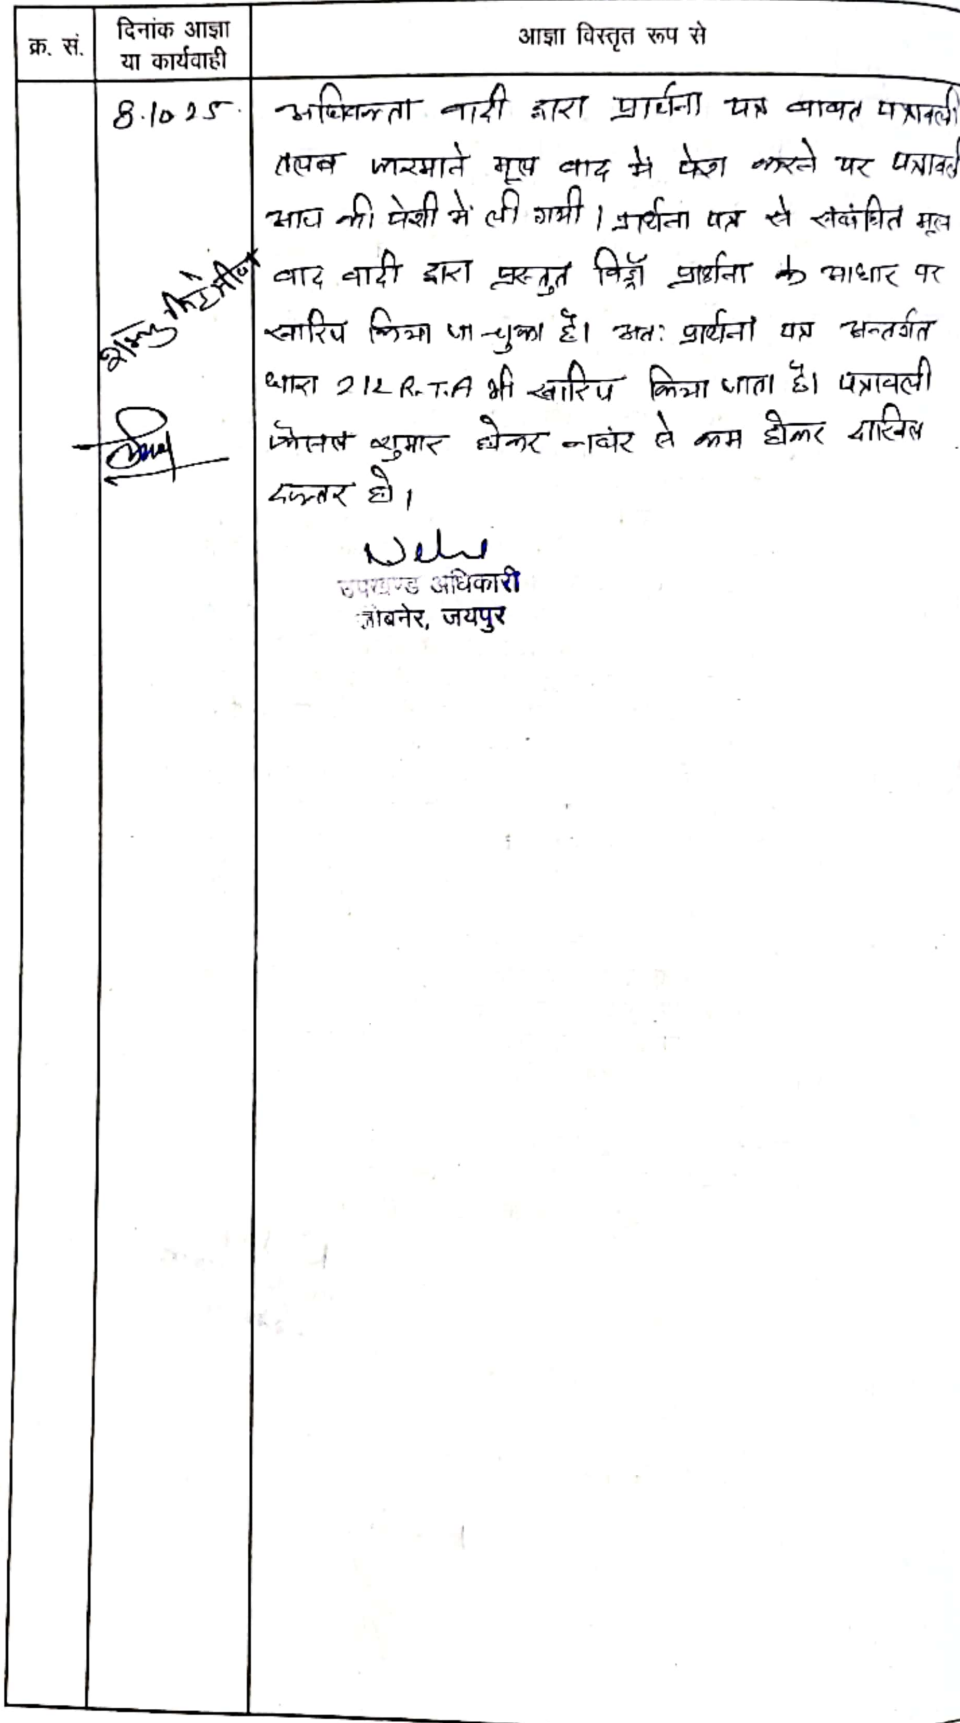 क्र. सं.
दिनांक आज्ञा
या कार्यवाही
आज्ञा विस्तृत रूप से
8.10.25
अधिवक्ता वादी द्वारा प्रार्थना पत्र बाबत पत्रावली
तलब फरमाने मूल वाद में पेश करने पर पत्रावली
आज की पेशी में ली गयी। प्रार्थना पत्र से संबंधित मूल
वाद वादी द्वारा प्रस्तुत विड्रॉ प्रार्थना के आधार पर
खारिज किया जा चुका है। अतः प्रार्थना पत्र अन्तर्गत
धारा 212 R.T.A भी खारिज किया जाता है। पत्रावली
फैसल शुमार होकर नबंर से कम होकर दाखिल
दफ्तर हो।
उपखण्ड अधिकारी
जोबनेर, जयपुर